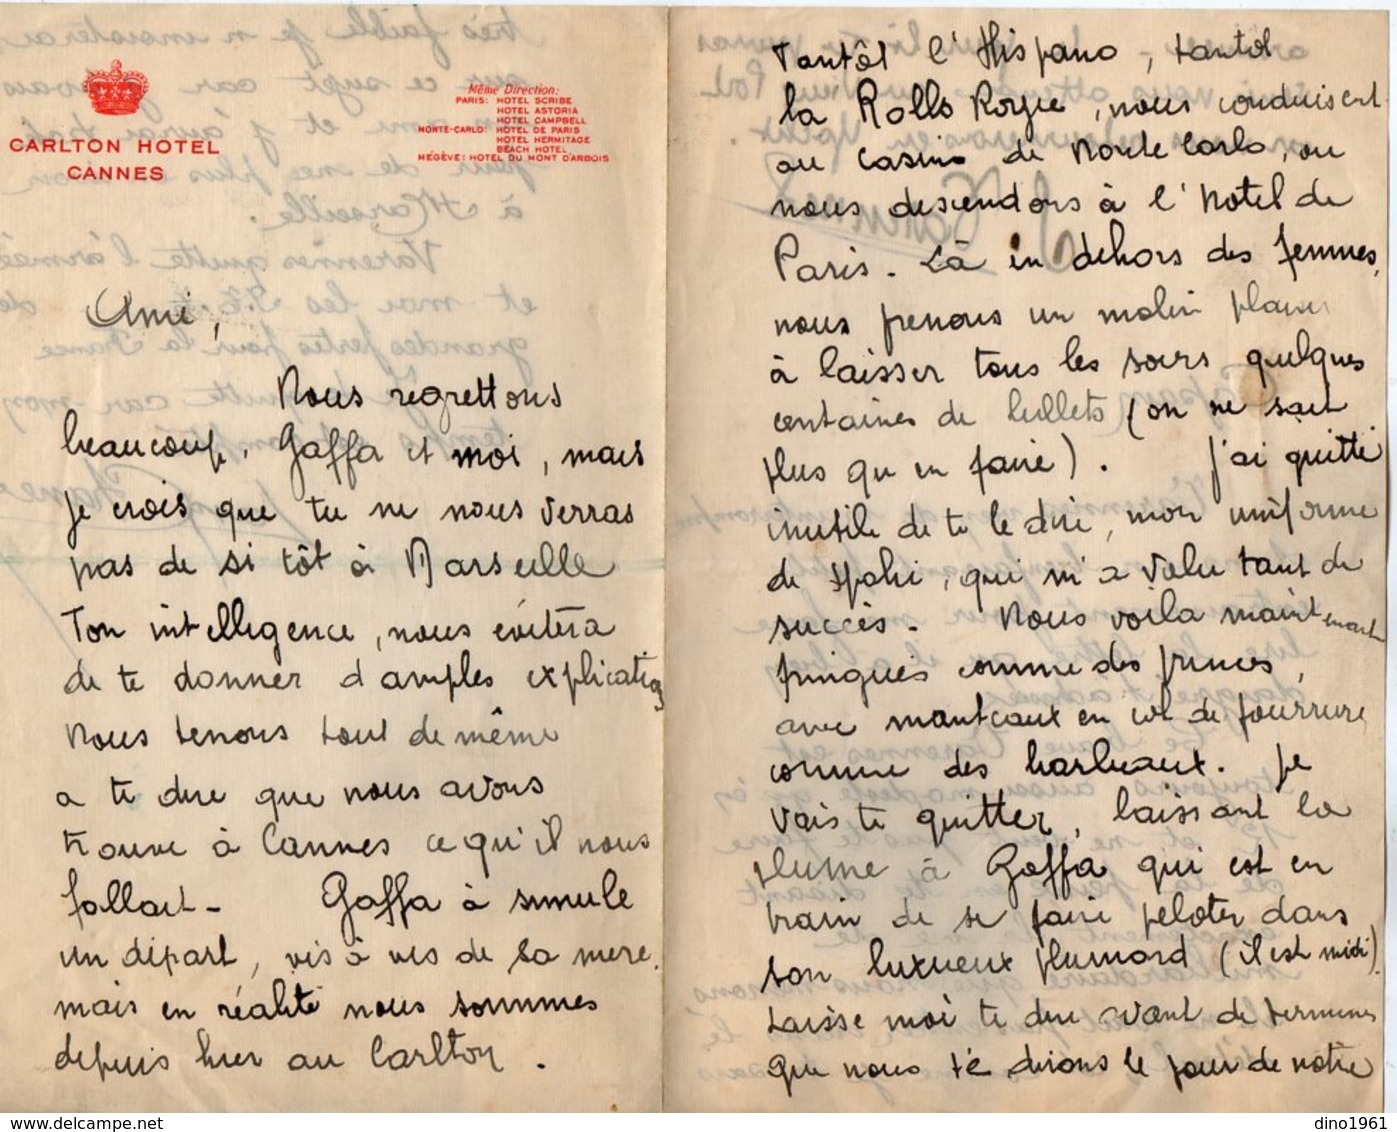 CARLTON HOTEL
CANNES
Même Direction:
PARIS: HOTEL SCRIBE
HOTEL ASTORIA
HOTEL CAMPBELL
MONTE-CARLO: HOTEL DE PARIS
HOTEL HERMITAGE
BEACH HOTEL
MÉGÈVE: HOTEL DU MONT D'ARBOIS
Ami,
Nous regrettons
beaucoup, Gaffa et moi, mais
je crois que tu ne nous verras
pas de si tôt à Marseille
Ton intelligence, nous évitera
de te donner d'amples explications
Nous tenons tout de même
a te dire que nous avons
trouve à Cannes ce qu'il nous
fallait - Gaffa à simulé
un départ, vis à vis de sa mere,
mais en réalité nous sommes
depuis hier au Carlton.
Tantôt l'Hispano, tantot
la Rolls Royce, nous conduisent
au Casino de Monte Carlo, ou
nous descendons à l'Hotel de
Paris. Là en dehors des femmes,
nous prenons un malin plaisir
à laisser tous les soirs quelques
centaines de billets (on ne sait
plus qu'en faire). J'ai quitté
inutile de te le dire, mon uniforme
de spahi, qui m'a valu tant de
succès. Nous voila maintenant
fringués comme des princes,
avec manteaux en col de fourrure
comme des barbeaux. Je
vais te quitter, laissant la
plume à Gaffa qui est en
train de se faire peloter dans
son luxueux plumard (il est midi).
Laisse moi te dire avant de terminer
que nous te dirons le jour de notre
dino1961